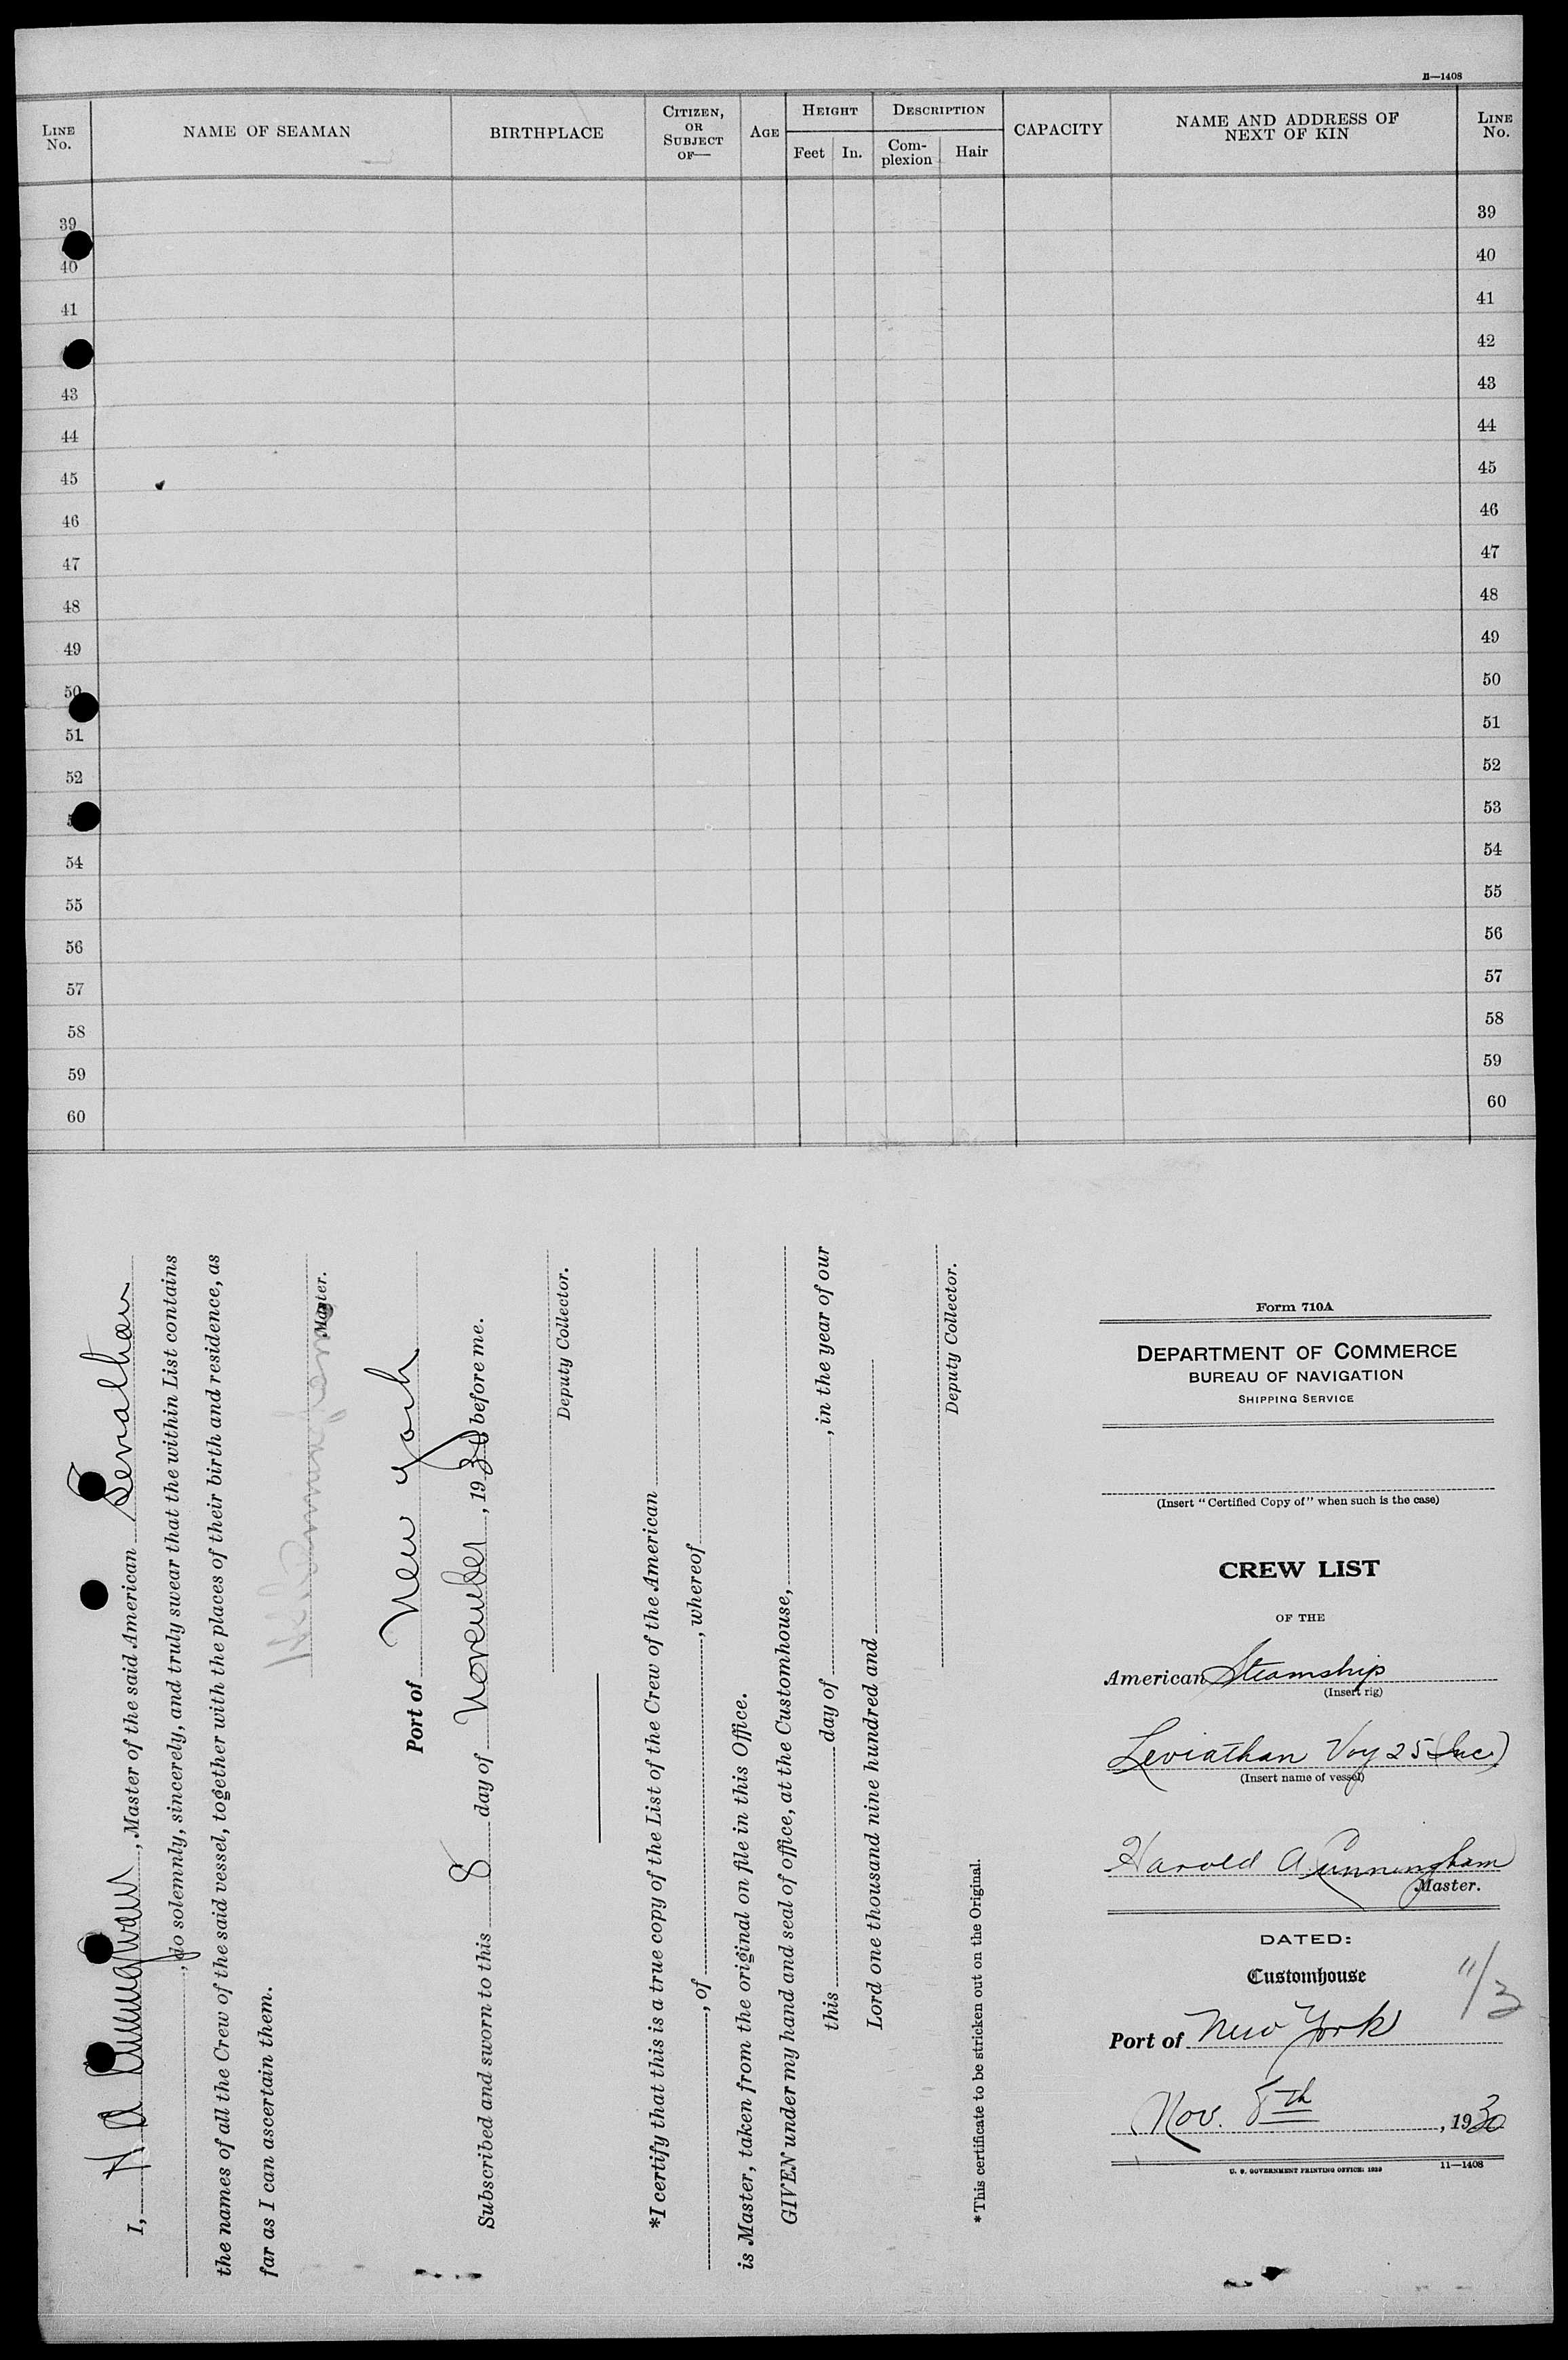 11—1408
LINE No. NAME OF SEAMAN BIRTHPLACE CITIZEN, OR SUBJECT OF— AGE HEIGHT DESCRIPTION CAPACITY NAME AND ADDRESS OF NEXT OF KIN LINE No.
Feet In. Com-plexion Hair
39 39
40 40
41 41
42
43 43
44 44
45 45
46 46
47 47
48 48
49 49
50 50
51 51
52 52
53
54 54
55 55
56 56
57 57
58 58
59 59
60 60
I, H A Cunningham, Master of the said American Leviathan
, do solemnly, sincerely, and truly swear that the within List contains
the names of all the Crew of the said vessel, together with the places of their birth and residence, as
far as I can ascertain them.
Master.
Port of New York
Subscribed and sworn to this 8 day of November, 1930 before me.
Deputy Collector.
*I certify that this is a true copy of the List of the Crew of the American
, of , whereof
is Master, taken from the original on file in this Office.
GIVEN under my hand and seal of office, at the Customhouse,
this day of , in the year of our
Lord one thousand nine hundred and
Deputy Collector.
*This certificate to be stricken out on the Original.
Form 710A
DEPARTMENT OF COMMERCE
BUREAU OF NAVIGATION
SHIPPING SERVICE
(Insert "Certified Copy of" when such is the case)
CREW LIST
OF THE
American Steamship
(Insert rig)
Leviathan Voy 25 (Inc)
(Insert name of vessel)
Harold A Cunningham
Master.
DATED:
Customhouse
11/3
Port of New York
Nov. 8th, 1930
U. S. GOVERNMENT PRINTING OFFICE: 1929 11—1408